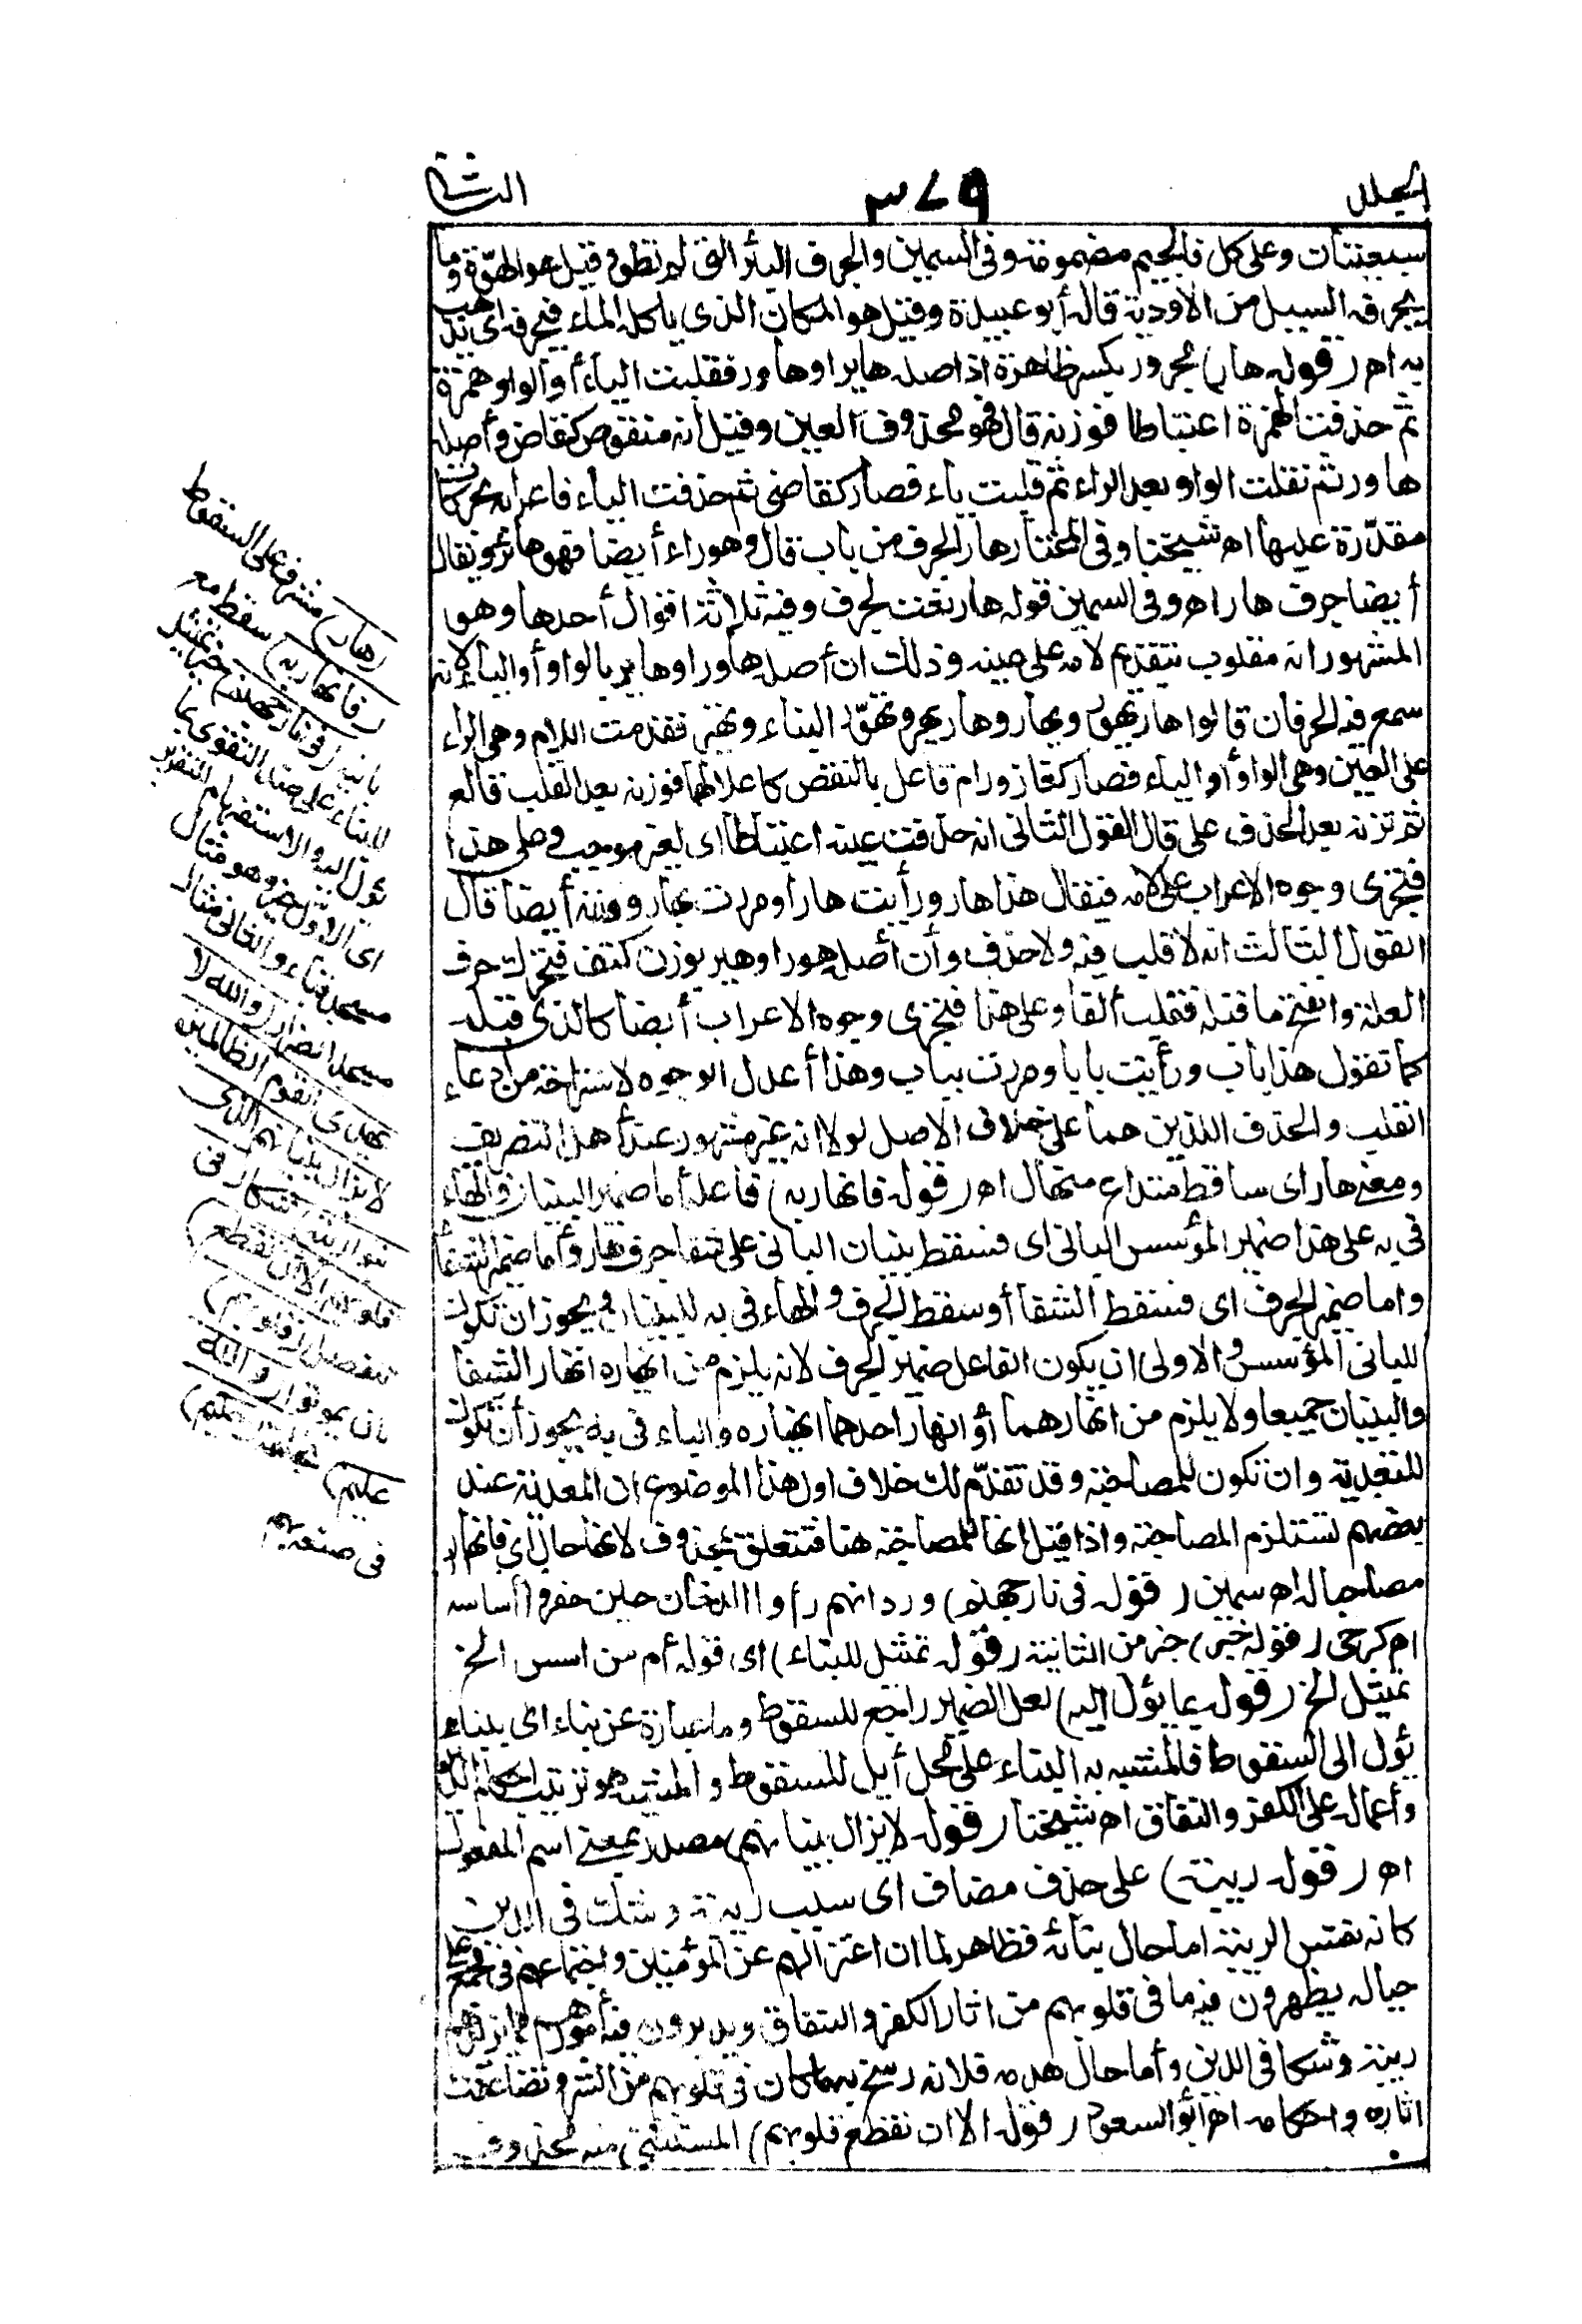 الجلد
٣٧٩
الثاني
سبعيتان وعلى كل فالجيم مضمومة وفي السمين والجرف البئر التي لم تطو وقيل هو الهوّة وما
يجرفه السيل من الاودية قاله أبو عبيدة وقيل هو المكان الذي يأكله الماء فيجرفه اى يذهب
به اهـ (قوله هار) مجرور بكسرة ظاهرة اذ اصله هاير او هاور فقلبت الياء أو الواو همزة
ثم حذفت الهمزة اعتباطا فوزنه قال فهو محذوف العين وقيل انه منقوص كقاض وأصله
هاور ثم نقلت الواو بعد الراء ثم قلبت ياء فصار كقاضى ثم حذفت الياء فاعرابه بحركات
مقدّرة عليها اهـ شيخنا وفي المختار هار الجرف من باب قال وهوراء أيضا فهو هائر ويقال
أيضا جرف هار اهـ وفي السمين قوله هار نعت لجرف وفيه ثلاثة اقوال أحدها وهو
المشهور انه مقلوب بتقديم لامه على عينه وذلك ان أصله هاور او هاير بالواو أو الياء لانه
سمع فيه الحرفان قالوا هار يهور وبهار وهار يهير وتهوّر البناء وتهير فقدمت اللام وهى الراء
على العين وهى الواو أو الياء فصار كغاز ورام فاعل بالنقص كاعلالهما فوزنه بعد القلب فالع
ثم تزنه بعد الحذف على قال القول الثانى انه حذفت عينه اعتباطا اى لغير موجب وعلى هذا
فتجرى وجوه الاعراب على لامه فيقال هذا هار ورأيت هارا ومررت بهار ووزنه أيضا قال
القول الثالث انه لا قلب فيه ولا حذف وأن أصله هور او هير بوزن كتف فتحرك حرف
العلة وانفتح ما قبله فقلب ألفا وعلى هذا فتجرى وجوه الاعراب أيضا كالذى قبله
كما تقول هذا باب ورأيت بابا ومررت بباب وهذا أعدل الوجوه لاستراحته من ادعاء
القلب والحذف اللذين هما على خلاف الاصل لولا انه غير مشهور عند أهل التصريف
ومعنى هار اى ساقط متداع منهال اهـ (قوله فانهار به) فاعله أما ضمير البنيان والهاء
فى به على هذا ضمير المؤسس البانى اى فسقط بنيان البانى على شفا جرف هار وأما ضمير الشفا
واما ضمير الجرف اى فسقط الشفا أو سقط الجرف والهاء فى به للبنيان ويجوز ان تكون
للبانى المؤسس والاولى ان يكون الفاعل ضمير الجرف لانه يلزم من انهياره انهيار الشفا
والبنيان جميعا ولا يلزم من انهيارهما أو انهيار احدهما انهياره والباء فى به يجوز أن تكون
للتعدية وان تكون للمصاحبة وقد تقدّم لك خلاف اول هذا الموضوع ان المعدية عند
بعضهم تستلزم المصاحبة واذا قيل انها للمصاحبة هنا فتتعلق بمحذوف لانها حال اى فانهار
مصاحبا له اهـ سمين (قوله فى نار جهنم) ورد انهم رأوا الدخان حين حفروا أساسه
اهـ كرخى (قوله خير) خبر من الثانية (قوله تمثيل للبناء) اى قوله أم من اسس الخ
تمثيل الخ (قوله بما يؤل اليه) لعل الضمير راجع للسقوط وما عبارة عن بناء اى ببناء
يؤل الى السقوط فالمشبه به البناء على محل أيل للسقوط والمشبه هو ترتيب احكام
وأعمال على الكفر والنفاق اهـ شيخنا (قوله لا يزال بنيانهم) مصدر بمعنى اسم المفعول
اهـ (قوله ريبة) على حذف مضاف اى سبب ريبة وشك فى الدين
كانه نفس الريبة اما حال بنائه فظاهر لما ان اعتزالهم عن المؤمنين واجتماعهم فى مجمع على
حياله يظهرون فيه ما فى قلوبهم من اثار الكفر والنفاق ويدبرون فيه أمورهم
ريبة وشكا فى الدين وأما حال هدمه فلانه رسخ به ما كان فى قلوبهم من الشر وتضاعفت
اثاره واحكامه اهـ أبو السعود (قوله الا ان تقطع قلوبهم) المستثنى منه محذوف
(هار) مشرف على السقوط
(فانهار به) سقط مع
بانيه (فى نار جهنم) خير تمثيل
للبناء على ضد التقوى بما
يؤل اليه والاستفهام للتقرير
اى الاول خير وهو مثال
مسجد قباء والثانى مثال
مسجد الضرار (والله لا
يهدى القوم الظالمين
لا يزال بنيانهم الذى
بنوا ريبة) شكا (فى
قلوبهم الا ان تقطع)
تنفصل (قلوبهم)
بان يموتوا (والله
عليم)
فى صنعه بهم